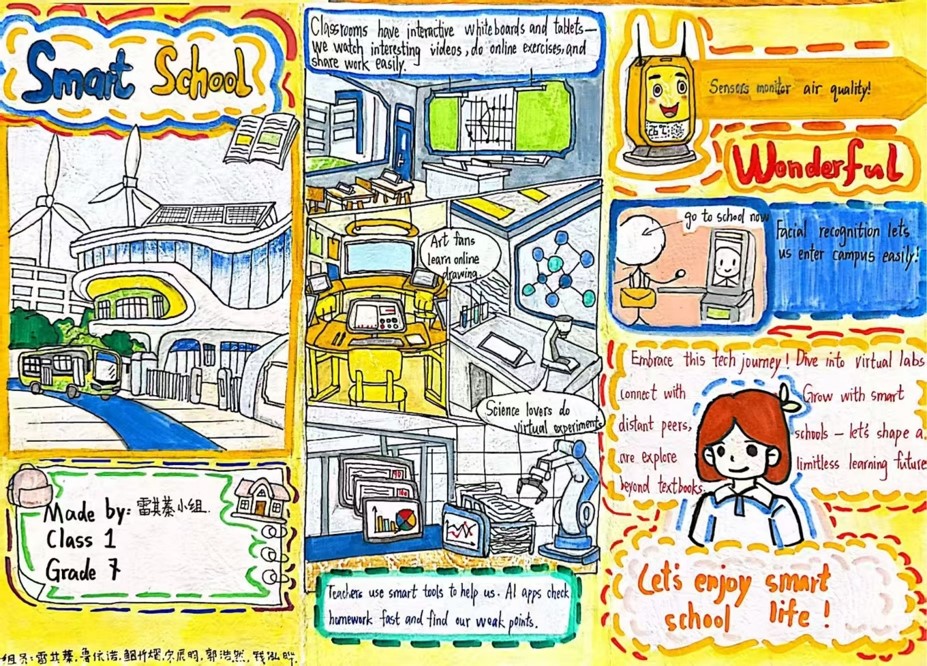 Smart School
Made by: 雷其蓁小组
Class 1
Grade 7
Classrooms have interactive whiteboards and tablets—
we watch interesting videos, do online exercises, and
share work easily.
Art fans
learn online
drawing.
Science lovers do
virtual experiments
Teachers use smart tools to help us. AI apps check
homework fast and find our weak points.
Sensors monitor air quality!
Wonderful
go to school now
Facial recognition lets
us enter campus easily!
Embrace this tech journey! Dive into virtual labs
connect with
distant peers,
are explore
beyond textbooks
Grow with smart
schools — let's shape a
limitless learning future
Let's enjoy smart
school life!
组员:雷其蓁,